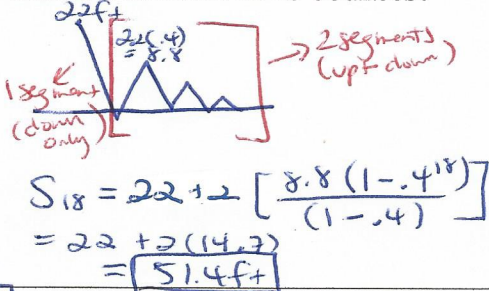 22ft
22(.4)
= 8.8
2 segments
(up + down)
1 segment
(down
only)
S18 = 22 + 2 [ 8.8 (1 - .4^18) / (1 - .4) ]
= 22 + 2(14.7)
= 51.4ft